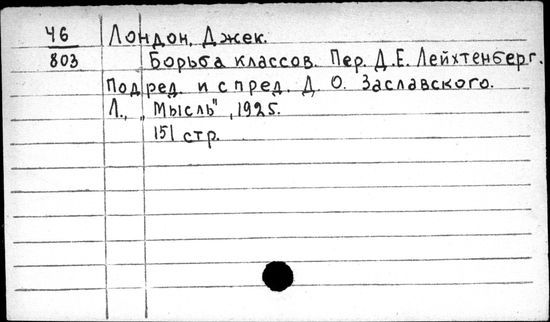 46 Лондон, Джек.
803 Борьба классов. Пер. Д.Е. Лейхтенберг.
Под ред. и с пред. Д. О. Заславского.
Л., „Мысль", 1925.
151 стр.